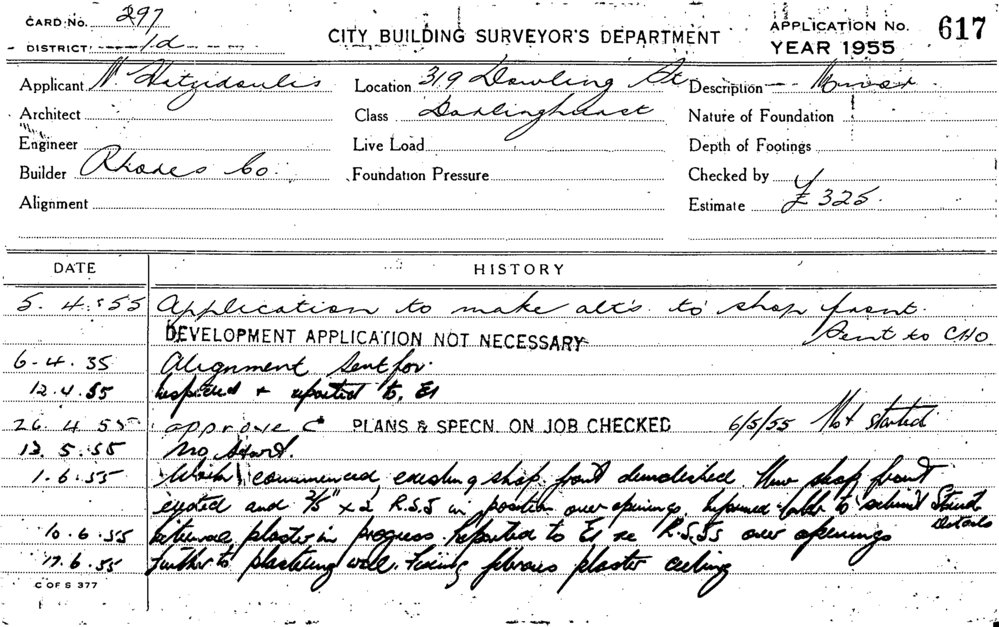 CARD NO. 297
DISTRICT 1d
CITY BUILDING SURVEYOR'S DEPARTMENT
APPLICATION No. 617
YEAR 1955
Applicant N. Location 319 Dowling St Description Minor
Architect Class Darlinghurst Nature of Foundation
Engineer Live Load Depth of Footings
Builder Rhodes Co. Foundation Pressure Checked by
Alignment Estimate £325.
DATE HISTORY
5.4.55 Application to make alt's to shop front.
DEVELOPMENT APPLICATION NOT NECESSARY Sent to CHO
6.4.55 Alignment sent for.
12.4.55 Inspected & reported to E1
26.4.55 approve PLANS & SPECN. ON JOB CHECKED 6/5/55 Not started
13.5.55 No start.
1.6.55 Work commenced, existing shop front demolished. New shop front
erected and R.S.J in position over openings. to submit Struct
Details
10.6.55 plaster in progress. Reported to E1 re R.S.Js over openings
17.6.55 Further to plastering wall. Fixing fibrous plaster ceiling
C OF S 377